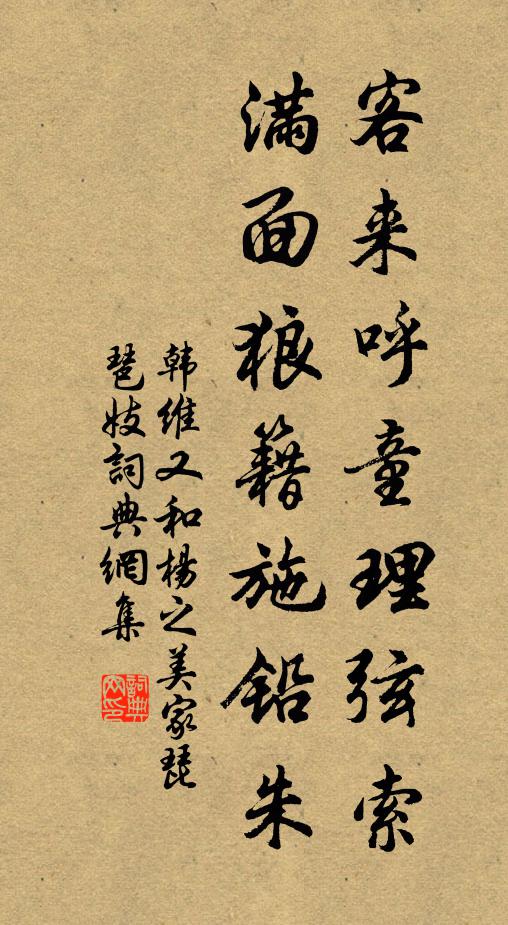 客来呼童理弦索
满面狼籍施铅朱
韩维又和杨之美家琵
琶妓詞典網集
詞典網印